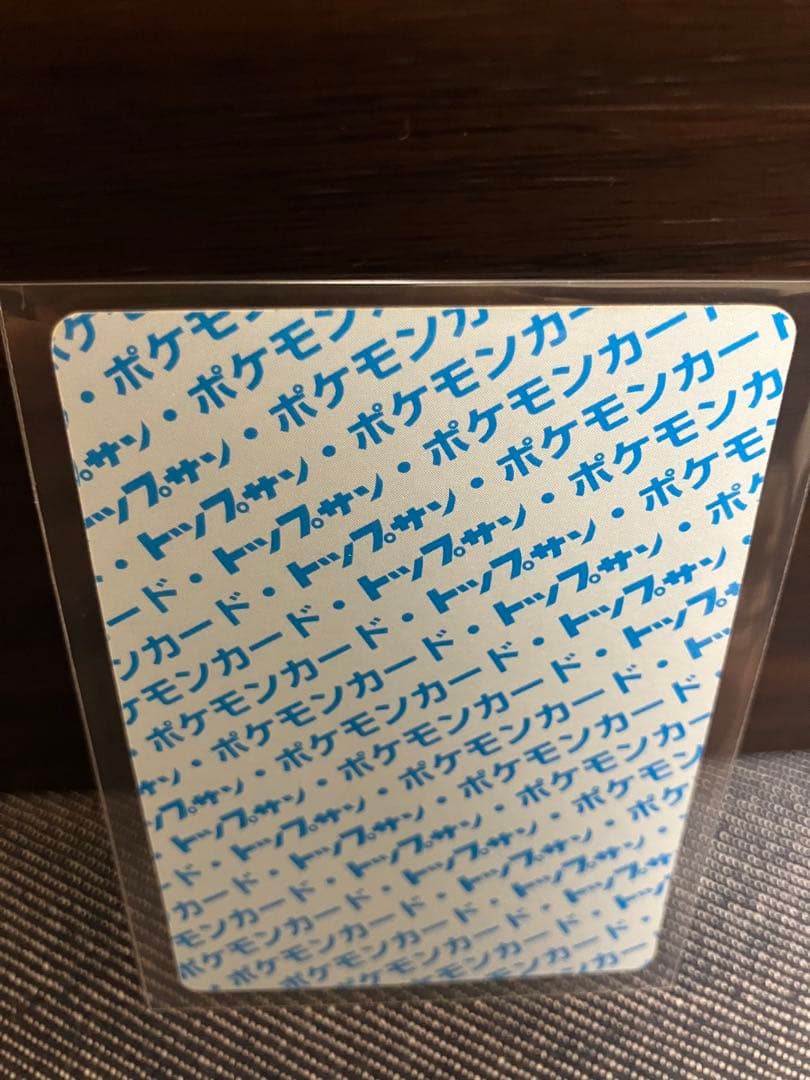 ケモ
・ポケモン
プサン・ポケモンカ
トップサン・ポケモンカード
・トップサン・ポケモンカード
ード・トップサン・ポケモンカ
ンカード・トップサン・ポケモン
ケモンカード・トップサン・ポケ
ポケモンカード・トップサン・ポ
・ポケモンカード・トップサン
サン・ポケモンカード・トップ
トップサン・ポケモンカード・ト
・トップサン・ポケモンカード・
ード・トップサン・ポケモンカ
カード・トップサン・ポケモン
モンカード・トップサン・ポケ
ポケモンカード・トップサン
・ポケモンカード・
ポケモンカード